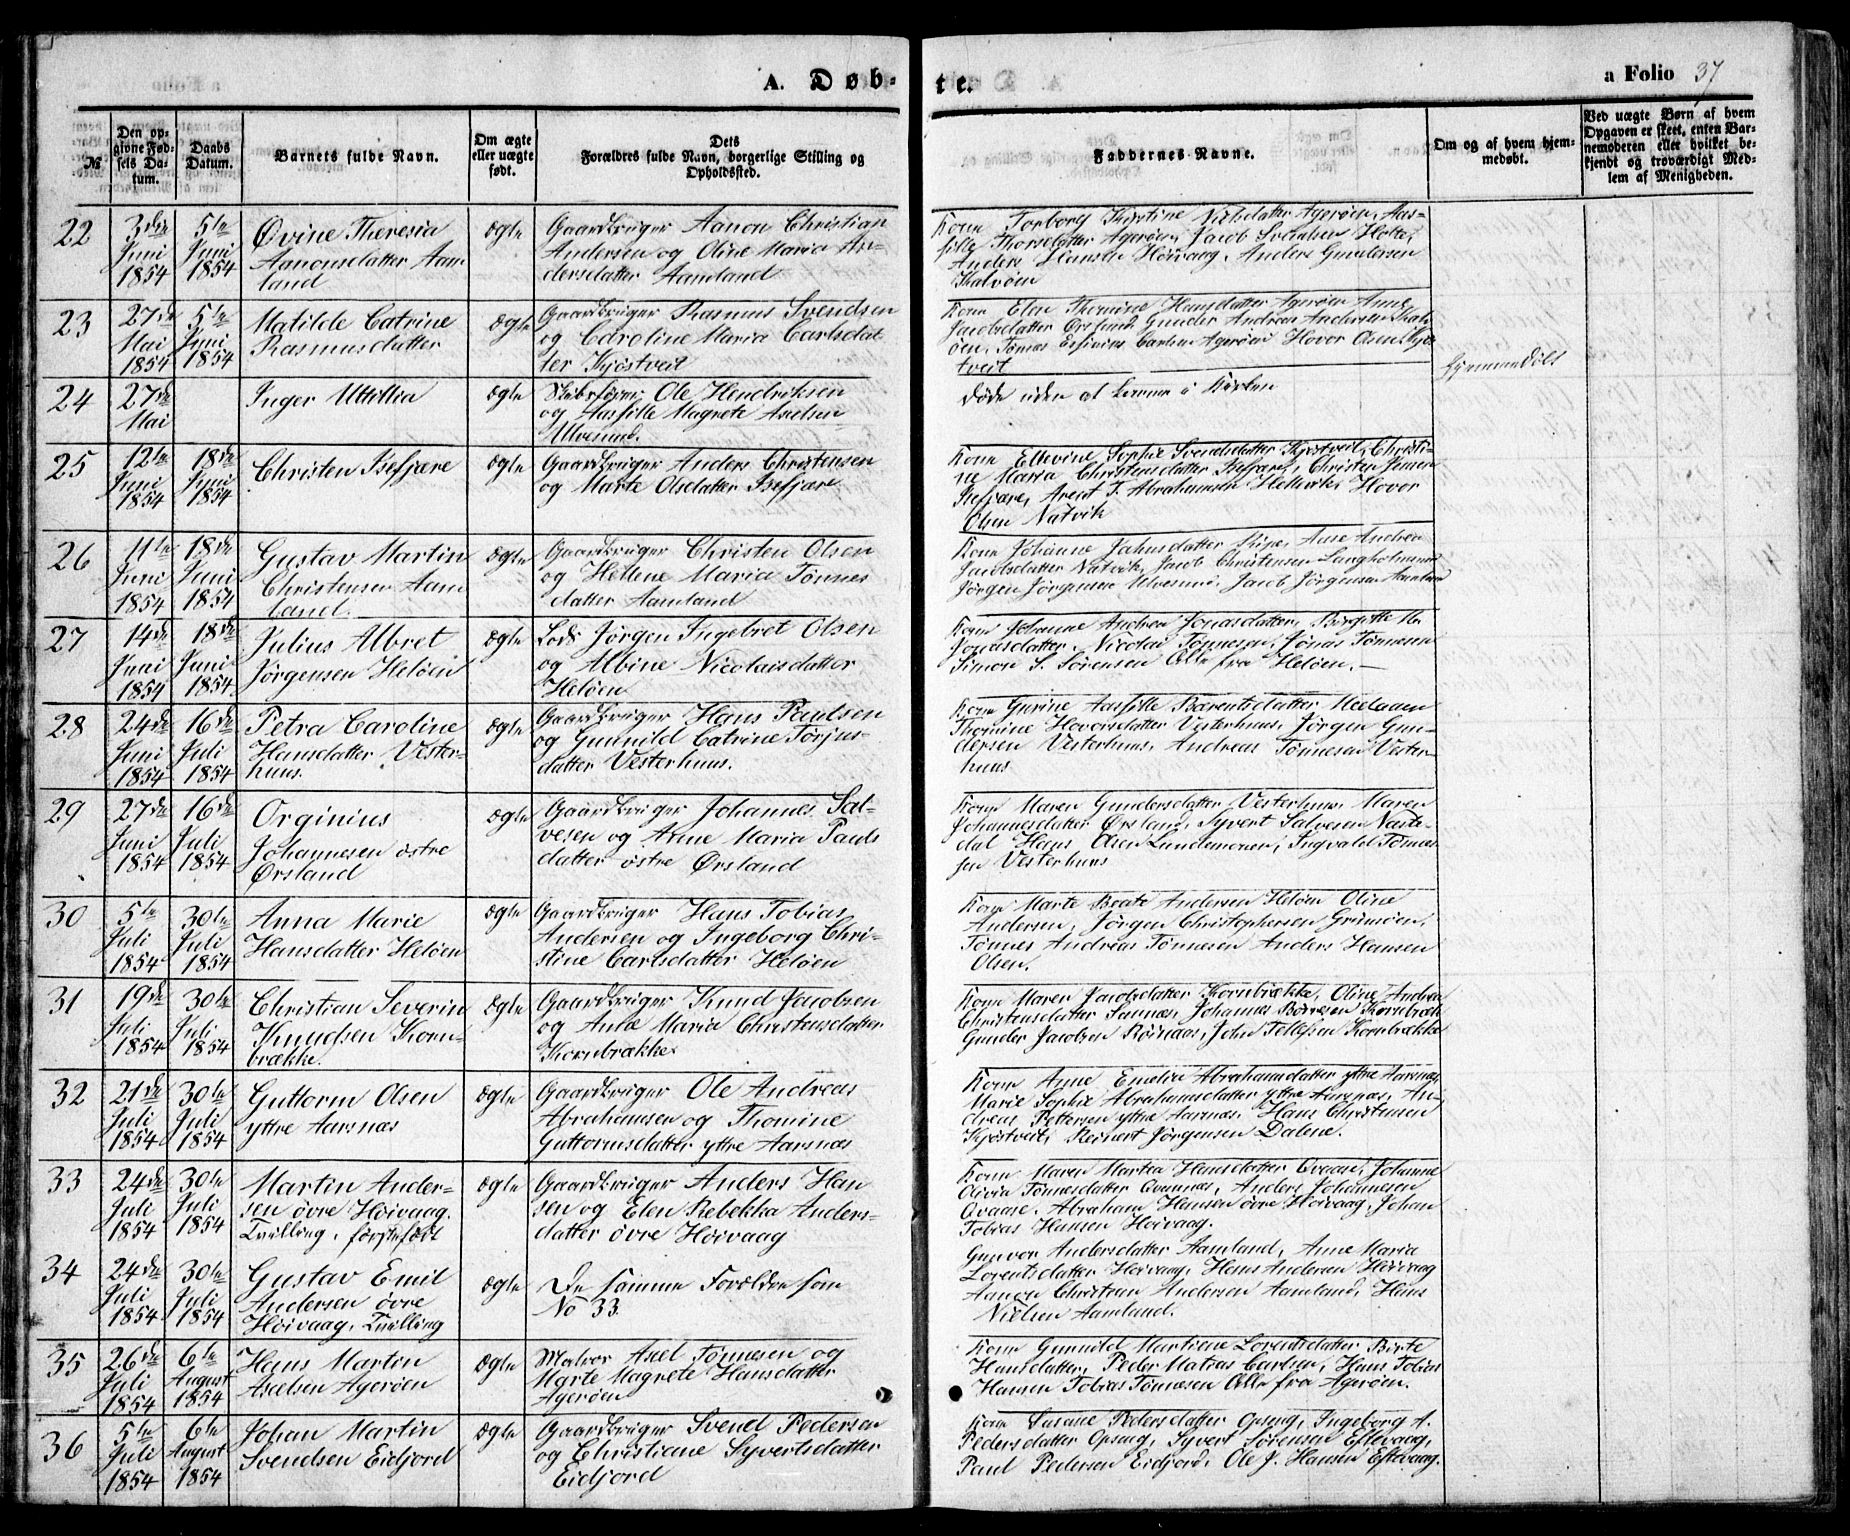 A. Døb-
te.
a Folio 37
№
Den op-
givne Fød-
sels Da-
tum.
Daabs
Datum.
Barnets fulde Navn.
Om ægte
eller uægte
født.
Dets
Forældres fulde Navn, borgerlige Stilling og
Opholdssted.
Faddernes Navne.
Om og af hvem hjem-
medøbt.
Ved uægte Børn af hvem
Opgaven er skeet, enten Bar-
nemoderen eller hvilket be-
kjendt og troværdigt Med-
lem af Menigheden.
22
3die
Juni
1854
5te
Juni
1854
Øvine Theresia
Aanonsdatter Aam
land
ægte
Gaardbruger Aanon Christian
Andersen og Oline Maria An-
dersdatter Aamland
Kone Tonborg Kirstine Nielsdatter Agerøen, Aas-
sille Thorsdatter Agerøen, Jacob Svendsen
Anders Hansen Høivaag, Anders Gundersen
Kalvøen
23
27de
Mai
1854
5te
Juni
1854
Matilde Catrine
Rasmusdatter
ægte
Gaardbruger Rasmus Svendsen
og Caroline Maria Carlsdat
ter Kjøstveit
Kone Elen Thomine Hansdatter Agerøen Anne
Jacobsdatter Ørsland, Gunder Andreas Andersen
øen, Tønnes Carlsen Agerøen Hover Olsen Kjøs
tveit
24
27de
Mai
Inger Uttillia
ægte
Skibsfører Ole Hendriksen
og Aassille Magrete Axelsen
Ulvesund.
Døde uden at komme i Kirken
hjemmedøbt
25
12te
Juni
1854
18de
Juni
1854
Christen Isefjære
ægte
Gaardbruger Anders Christensen
og Marte Olsdatter Isefjære
Kone Ellevine Sophie Svendsdatter Kjøstveit, Christi-
ne Maria Christensdatter Isefjære, Christen Jensen
Isefjære, Arent T. Abrahamsen Hellevik, Hover
Olsen Natvik
26
11te
Juni
1854
18de
Juni
1854
Gustav Martin
Christensen Aam
land.
ægte
Gaardbruger Christen Olsen
og Hellene Maria Tønnes
datter Aamland
Kone Johanne Jahnsdatter Aase Andrea
Jacobsdatter Natvik, Jacob Christensen
Jørgen Jørgensen Ulvesund, Jacob Jørgensen Aamland
27
14de
Juni
1854
18de
Juni
1854
Julius Albret
Jørgensen Heløen
ægte
Lods Jørgen Ingebret Olsen
og Albine Nicolaisdatter
Heløen
Kone Johanne Andrea Jonasdatter, Birgitte M.
Jonasdatter, Nicolai Tønnesen, Jonas Tønnesen
Simon S. Sørensen Alle fra Heløen. —
28
24de
Juni
1854
16de
Juli
1854
Petra Caroline
Hansdatter Vester-
huus.
ægte
Gaardbruger Hans Paulsen
og Gunnild Catrine Torjus-
datter Vesterhuus.
Kone Gurine Aassille Berentsdatter
Thomine Hoversdatter Vesterhuus, Jørgen Gun-
dersen Vesterhuus, Andreas Tønnesen Vester-
huus
29
27de
Juni
1854
16de
Juli
1854
Orginius
Johannesen østre
Ørsland
ægte
Gaardbruger Johannes Sal-
vesen og Anne Maria Pauls
datter østre Ørsland
Kone Maren Gundersdatter Vesterhuus, Maren
Johannesdatter Ørsland, Syvert Salvesen
dal Hans Olsen Lundemonen, Ingvald Tønnes
sen Vesterhuus
30
5te
Juli
1854
30te
Juli
1854
Anna Marie
Hansdatter Heløen
ægte
Gaardbruger Hans Tobias
Andersen og Ingeborg Chri-
stine Carlsdatter Heløen
Kone Marte Beate Andersen Heløen Oline
Andersen, Jørgen Christophersen Grimsøen,
Tønnes Andreas Tønnesen Anders Hansen
Olsen.
31
19de
Juli
1854
30te
Juli
1854
Christian Severin
Knudsen Korn-
brække.
ægte
Gaardbruger Knud Jacobsen
og Anne Maria Christensdatter
Kornbrække
Kone Maren Jacobsdatter Kornbrække, Oline Andrea
Christensdatter Sannæs, Johannes Børresen Kornbrække
Gunder Jacobsen Røinaas, John Tellefsen Kornbrække
32
21de
Juli
1854
30te
Juli
1854
Guttorm Olsen
yttre Aarsnæs
ægte
Gaardbruger Ole Andreas
Abrahamsen og Thomine
Guttormsdatter yttre Aarsnæs
Kone Anne Emelia Abrahamsdatter yttre Aarsnæs,
Marie Sophie Abrahamsdatter yttre Aarsnæs, An-
dreas Pettersen yttre Aarsnæs, Hans Christensen
Kjøstveit, Reinert Jørgensen Dalene.
33
24de
Juli
1854
30te
Juli
1854
Martin Ander-
sen øvre Høivaag.
Tvilling, førstefødt
ægte
Gaardbruger Anders Han
sen og Elen Rebekka Anders-
datter øvre Høivaag
Kone Maren Martea Hansdatter Qvaase, Johanne
Olivia Tønnesdatter Qvannes, Anders Johannesen
Qvaase, Abraham Hansen øvre Høivaag, Johan
Tobias Hansen Høivaag.
34
24de
Juli
1854
30te
Juli
1854
Gustav Emil
Andersen øvre
Høivaag, Tvilling
ægte
De samme Forældre som
No 33
Gunvor Andersdatter Aamland, Anne Maria
Lorentsdatter Høivaag, Hans Andersen Høivaag
Aanon Christian Andersen Aamland, Hans
Nielsen Aamland.
35
26de
Juli
1854
6te
August
1854
Hans Martin
Axelsen Agerøen
ægte
Matros Axel Tønnesen og
Marte Magrete Hansdatter
Agerøen
Kone Gunnild Martiene Lorentsdatter Birte
Hansdatter, Peder Matias Carlsen, Hans Tobias
Hansen Tobias Tønnesen Alle fra Agerøen.
36
5te
Juli
1854
6te
August
1854
Johan Martin
Svendsen Eidjord
ægte
Gaardbruger Svend Pedersen
og Christiane Syvertsdatter
Eidjord
Kone Susane Pedersdatter Opsng, Ingeborg A.
Pedersdatter Opsng, Syvert Sørensen Eftevaag,
Paul Pedersen Eidjord, Ole J. Hansen Eftevaag.